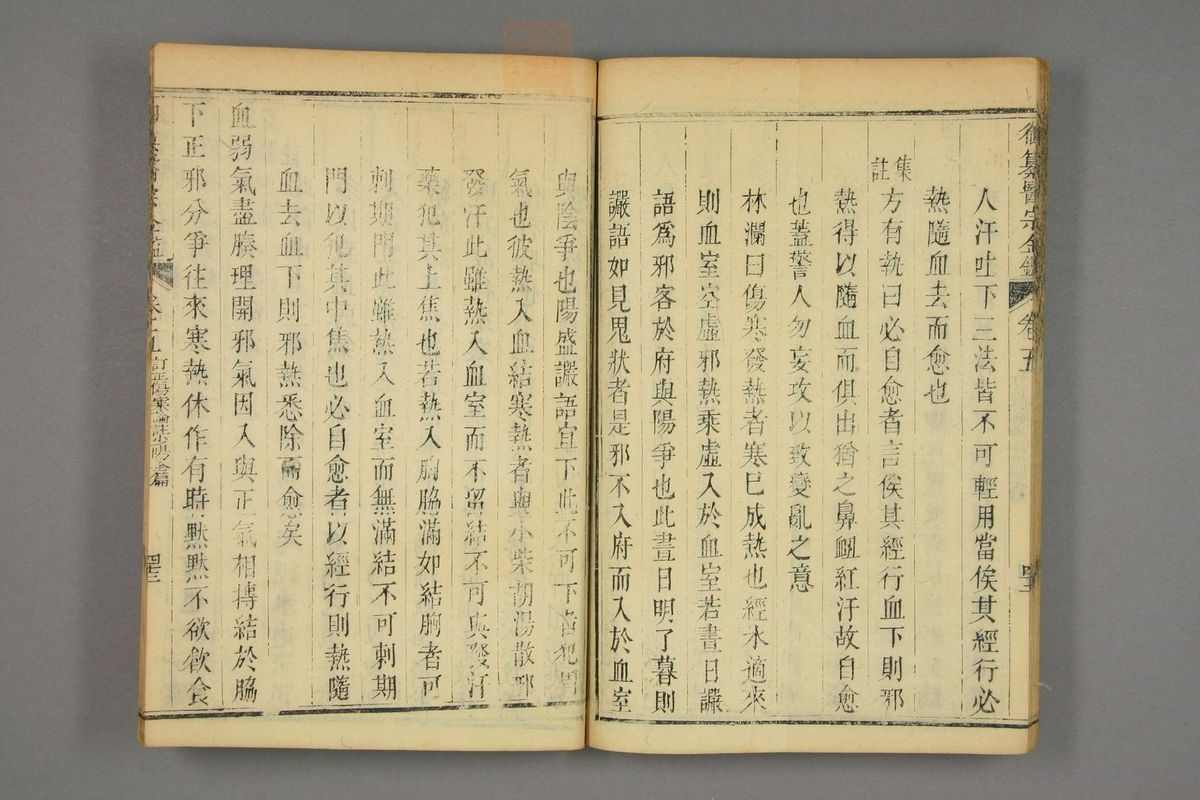 御纂醫宗金鑑 卷五
人汗吐下三法皆不可輕用當俟其經行必
熱隨血去而愈也
集註
方有執曰必自愈者言俟其經行血下則邪
熱得以隨血而俱出猶之鼻衄紅汗故自愈
也蓋警人勿妄攻以致變亂之意
林瀾曰傷寒發熱者寒已成熱也經水適來
則血室空虛邪熱乘虛入於血室若晝日讝
語爲邪客於府與陽爭也此晝日明了暮則
讝語如見鬼狀者是邪不入府而入於血室
與陰爭也陽盛讝語宜下此不可下者犯胃
氣也彼熱入血結寒熱者與小柴胡湯散邪
發汗此雖熱入血室而不留結不可與發汗
藥犯其上焦也若熱入胸脇滿如結胸者可
刺期門此雖熱入血室而無滿結不可刺期
門以犯其中焦也必自愈者以經行則熱隨
血去血下則邪熱悉除而愈矣
血弱氣盡腠理開邪氣因入與正氣相摶結於脇
下正邪分爭往來寒熱休作有時默默不欲飲食
卷五 訂正傷寒論註少陽全篇